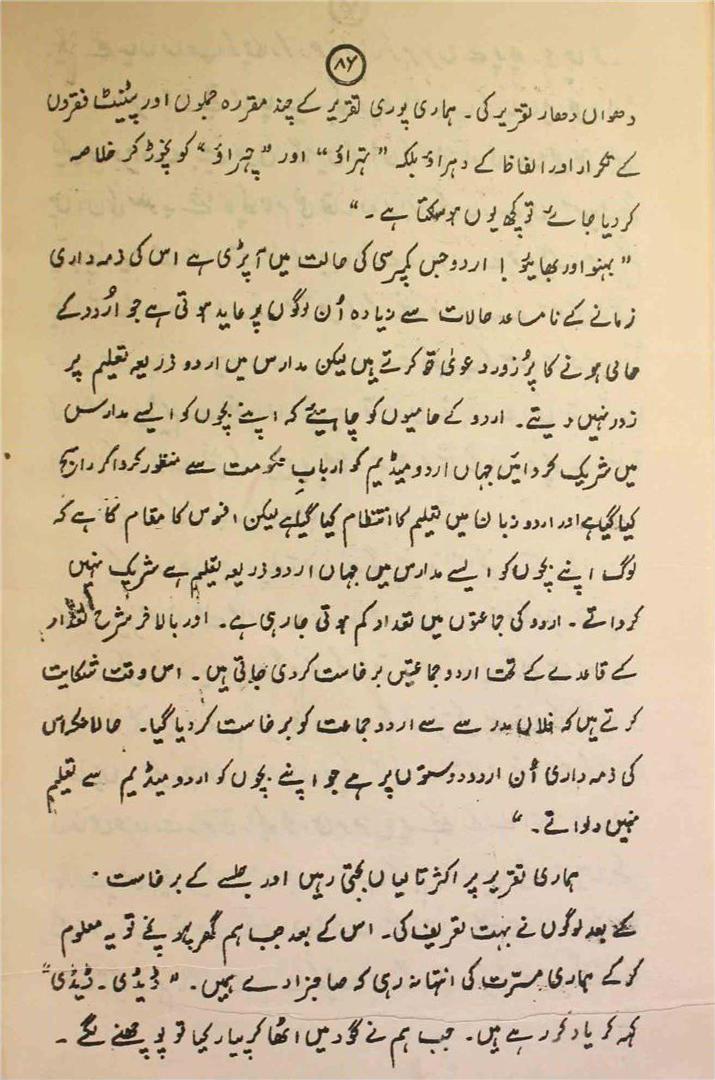 ۸۶
دھواں دھار تقریر کی۔ ہماری پوری تقریر کے چند مقررہ جملوں اور پیٹنٹ فقروں
کے تکرار اور الفاظ کے دہراؤ بلکہ "تہراؤ" اور "چہراؤ" کو نچوڑ کر خلاصہ
کر دیا جائے تو کچھ یوں ہو سکتا ہے۔"
"بہنو اور بھائیو! اردو جس کسمپرسی کی حالت میں آ پڑی ہے اس کی ذمہ داری
زمانے کے نامساعد حالات سے زیادہ اُن لوگوں پر عاید ہوتی ہے جو اُردو کے
حامی ہونے کا پُر زور دعویٰ تو کرتے ہیں لیکن مدارس میں اردو ذریعہ تعلیم پر
زور نہیں دیتے۔ اردو کے حامیوں کو چاہیئے کہ اپنے بچوں کو ایسے مدارس
میں شریک کروائیں جہاں اردو میڈیم کو اربابِ حکومت سے منظور کروا کر رائج
کیا گیا ہے اور اردو زبان میں تعلیم کا انتظام کیا گیا ہے لیکن افسوس کا مقام ہے کہ
لوگ اپنے بچوں کو ایسے مدارس میں جہاں اردو ذریعہ تعلیم ہے شریک نہیں
کرواتے۔ اردو کی جماعتوں میں تعداد کم ہوتی جا رہی ہے۔ اور بالآخر شرح تعداد
کے قاعدے کے تحت اردو جماعتیں برخاست کر دی جاتی ہیں۔ اس وقت شکایت
کرتے ہیں کہ فلاں مدرسے سے اردو جماعت کو برخاست کر دیا گیا۔ حالانکہ اس
کی ذمہ داری اُن اردو دوستوں پر ہے جو اپنے بچوں کو اردو میڈیم سے تعلیم
نہیں دلواتے۔"
ہماری تقریر پر اکثر تالیاں بجتی رہیں اور جلسے کے برخاست
کے بعد لوگوں نے بہت تعریف کی۔ اس کے بعد جب ہم گھر پہونچے تو یہ معلوم
کر کے ہماری مسرّت کی انتہا نہ رہی کہ صاحبزادے ہمیں۔ "ڈیڈی۔ ڈیڈی"
کہہ کر یاد کر رہے ہیں۔ جب ہم نے گود میں اٹھا کر پیار کیا تو پوچھنے لگے۔